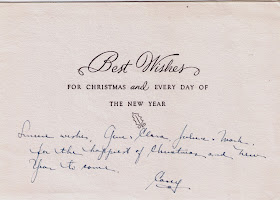 Best Wishes
FOR CHRISTMAS and EVERY DAY OF
THE NEW YEAR
Sincere wishes, Clara Mark.
for the happiest of Christmas and New
Year to come.